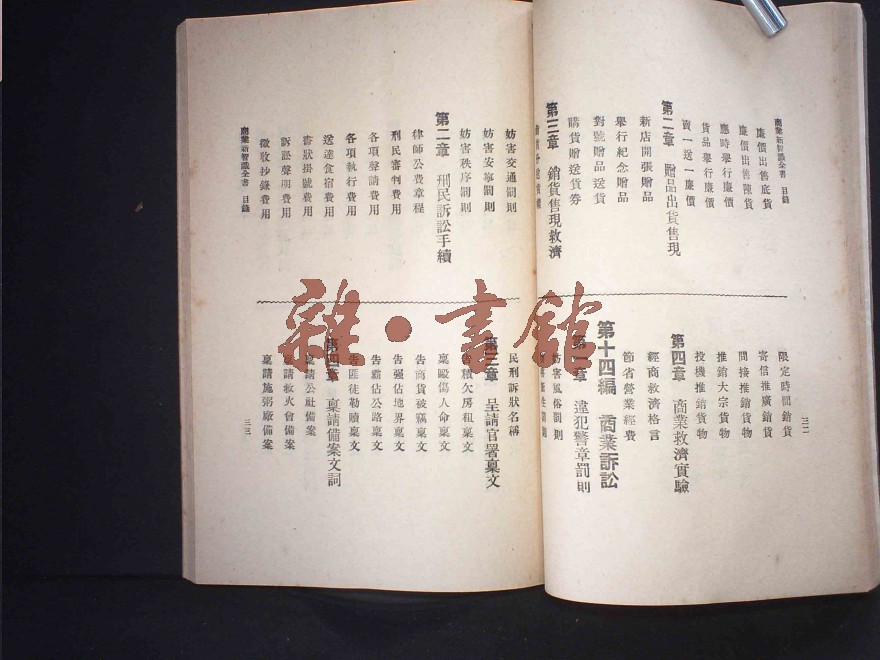 商業新智識全書 目錄
廉價出售底貨
廉價出售陳貨
應時舉行廉價
貨品舉行廉價
賣一送一廉價
第二章 贈品出貨售現
新店開張贈品
舉行紀念贈品
對號贈品送貨
購貨贈送貨券
第三章 銷貨售現救濟
限定時間銷貨
寄信推廣銷貨
間接推銷貨物
推銷大宗貨物
投機推銷貨物
第四章 商業救濟實驗
經商救濟格言
節省營業經費
第十四編 商業訴訟
第一章 違犯警章罰則
妨害風俗罰則
三二
妨害交通罰則
妨害安寧罰則
妨害秩序罰則
第二章 刑民訴訟手續
律師公費章程
刑民審判費用
各項聲請費用
各項執行費用
送達食宿費用
書狀掛號費用
訴訟聲明費用
徵收抄錄費用
商業新智識全書 目錄
民刑訴狀名稱
第三章 呈請官署稟文
告積欠房租稟文
稟毆傷人命稟文
告商貨被竊稟文
告强佔地界稟文
告霸佔公路稟文
告匪徒勒贖稟文
第四章 稟請備案文詞
稟請公社備案
稟請救火會備案
稟請施粥廠備案
三三
雜·書館